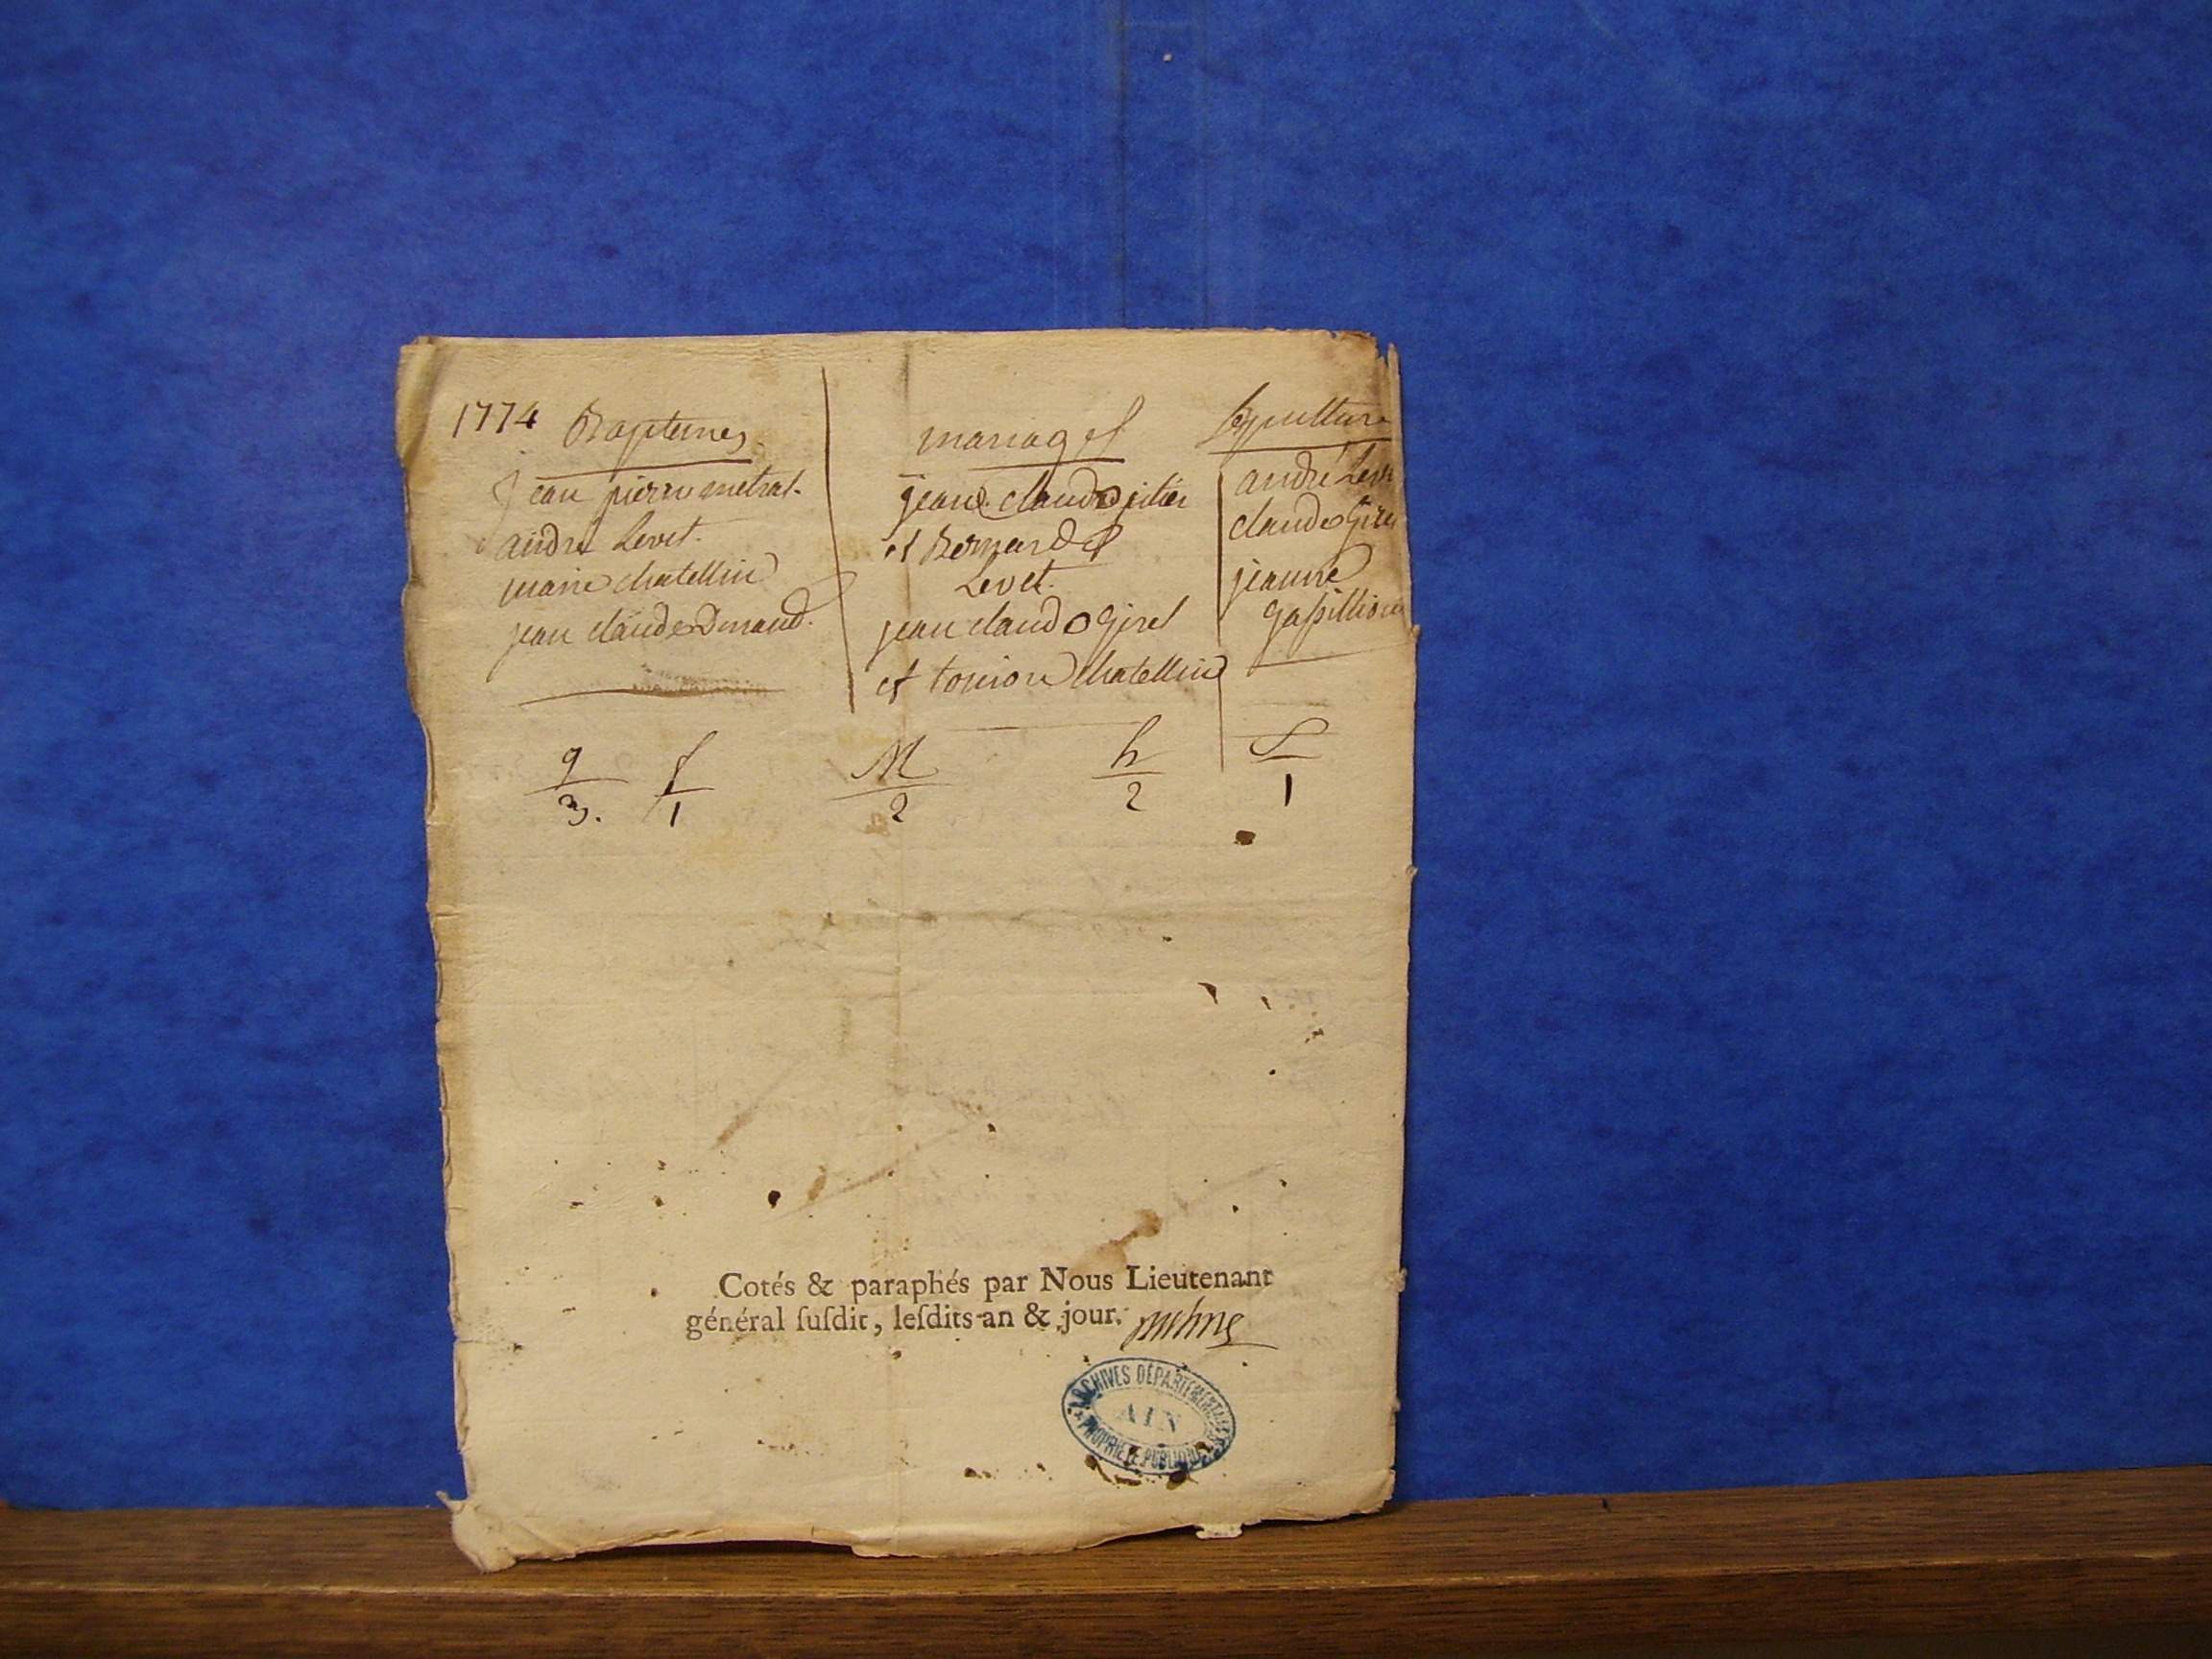 1774 Baptemes
jean pierre metral.
andré Levet.
marie chatellin
jean claude Dunand.
mariages
jean claude
et Bernarde
Levet.
jean claude Girel
et chatellin
Sepulture
andré Leve
claude Gire
jeanne
g f M h f
3. 1 2 2 1
Cotés & paraphés par Nous Lieutenant
général ſuſdit, leſdits an & jour.
ARCHIVES DÉPARTEMENTALES
AIN
PROPRIÉTÉ PUBLIQUE